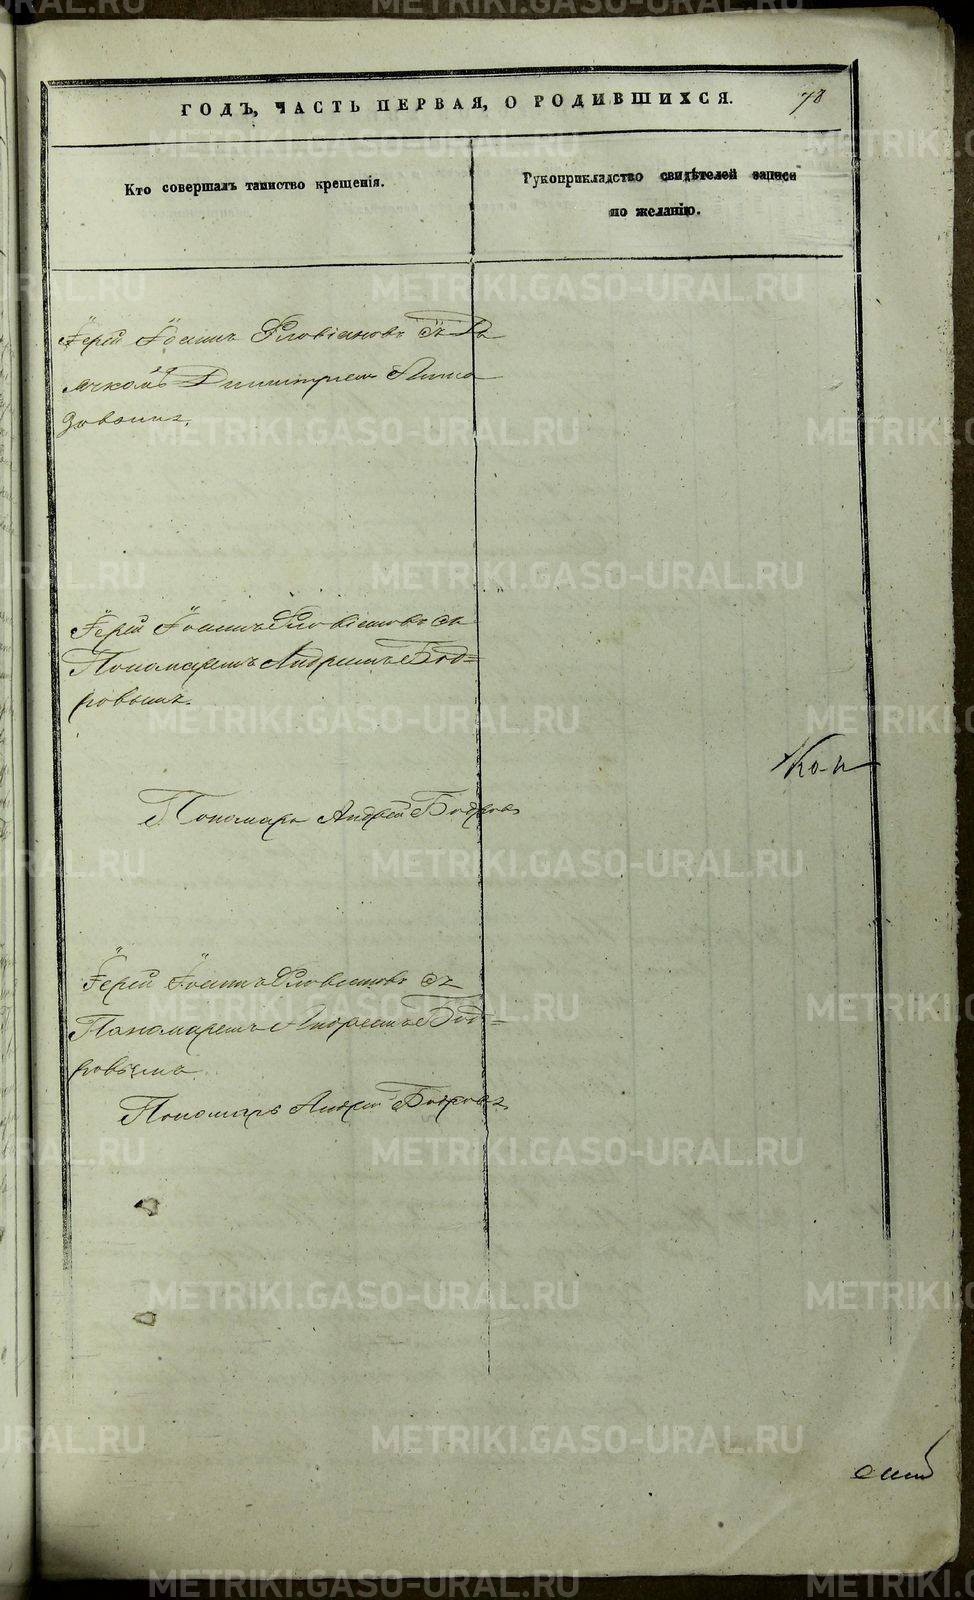 ГОДЪ, ЧАСТЬ ПЕРВАЯ, О РОДИВШИХСЯ.
78
Кто совершалъ таинство крещенія.
Рукоприкладство свидѣтелей записи
по желанію.
Іерей Іоаннъ Словіановъ съ Дь
ячкомъ Димитріем
Іерей Іоаннъ Словіановъ съ
Пономаремъ Андреемъ Бод=
ровымъ.
Пономарь Андрей Бодровъ
Іерей Іоаннъ Словіановъ съ
Пономаремъ Андреемъ Бод=
ровымъ
Пономарь Андрей Бодровъ
METRIKI.GASO-URAL.RU